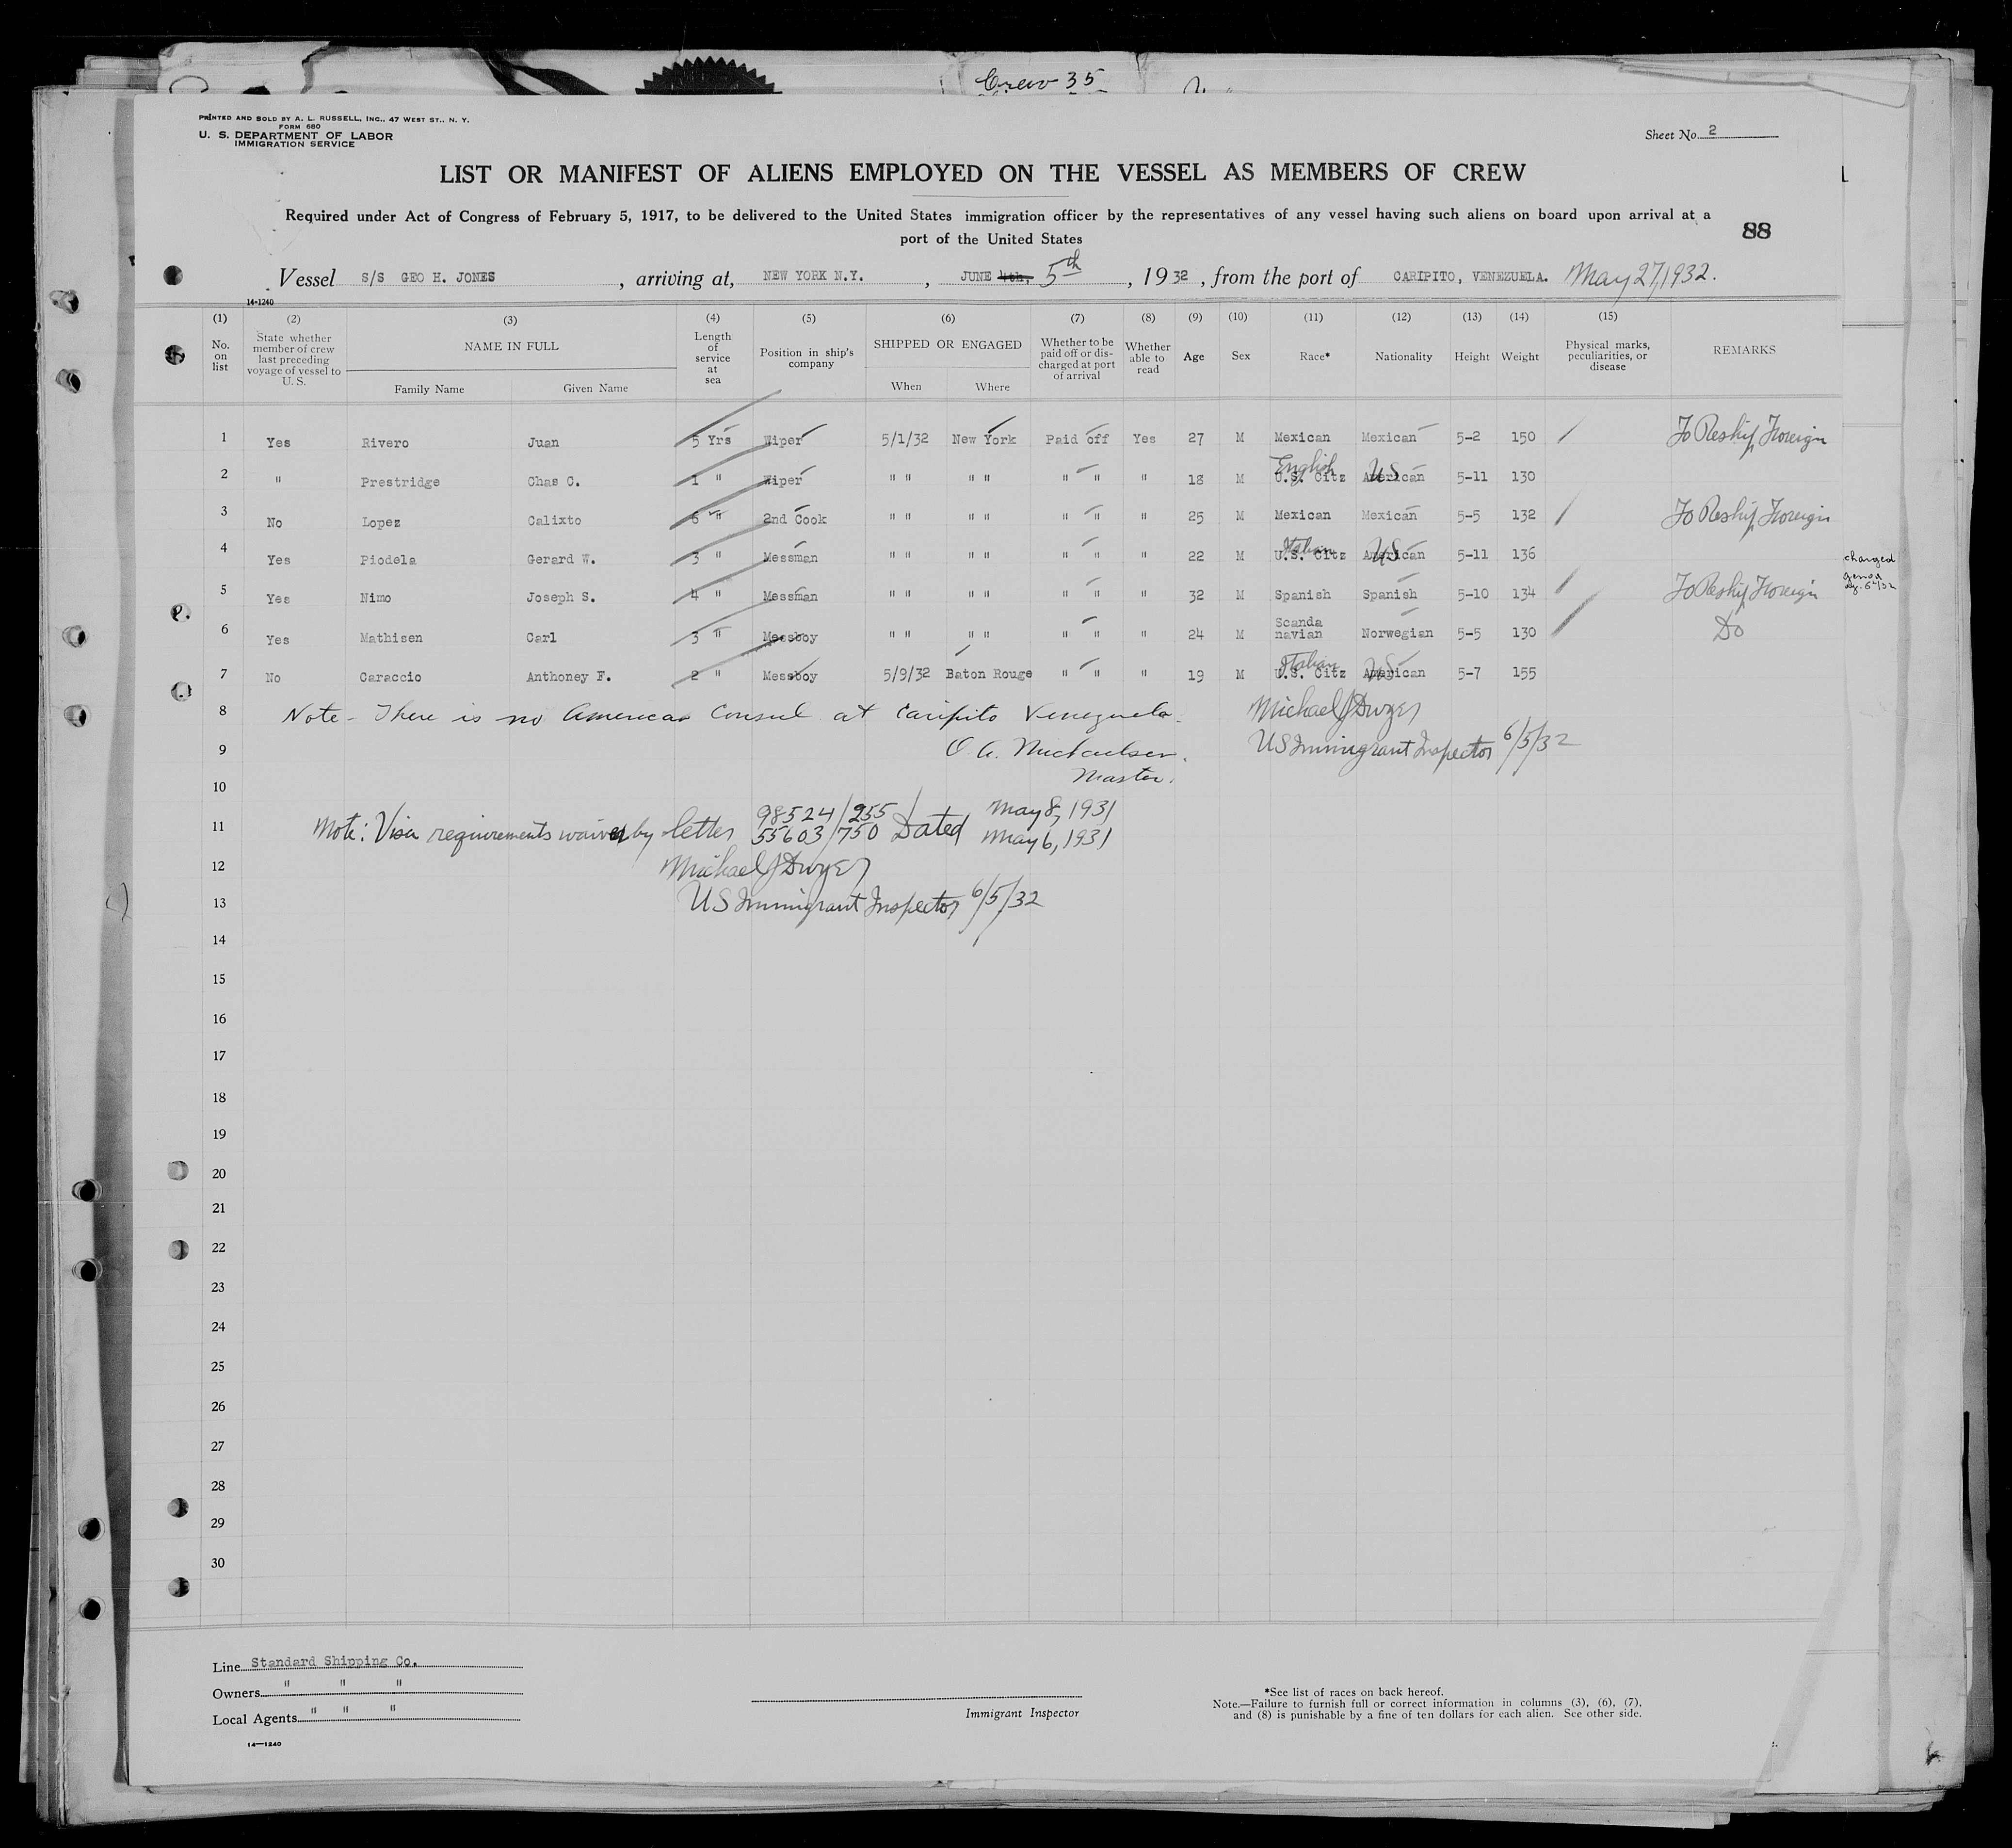 Crew 35
PRINTED AND SOLD BY A. L. RUSSELL, INC., 47 WEST ST., N. Y.
FORM 680
U. S. DEPARTMENT OF LABOR
IMMIGRATION SERVICE
Sheet No. 2
LIST OR MANIFEST OF ALIENS EMPLOYED ON THE VESSEL AS MEMBERS OF CREW
Required under Act of Congress of February 5, 1917, to be delivered to the United States immigration officer by the representatives of any vessel having such aliens on board upon arrival at a
port of the United States
88
Vessel S/S GEO H. JONES, arriving at, NEW YORK N.Y., JUNE 4th, 5th, 1932, from the port of CARIPITO, VENEZUELA. May 27, 1932.
14-1240
(1) (2) (3) (4) (5) (6) (7) (8) (9) (10) (11) (12) (13) (14) (15)
No. on list State whether member of crew last preceding voyage of vessel to U. S. NAME IN FULL Family Name Given Name Length of service at sea Position in ship's company SHIPPED OR ENGAGED When Where Whether to be paid off or discharged at port of arrival Whether able to read Age Sex Race* Nationality Height Weight Physical marks, peculiarities, or disease REMARKS
1 Yes Rivero Juan 5 Yrs Wiper 5/1/32 New York Paid off Yes 27 M Mexican Mexican 5-2 150 To Reship Foreign
2 " Prestridge Chas C. 1 " Wiper " " " " " " " 18 M English U.S. Citz US American 5-11 130
3 No Lopez Calixto 6 " 2nd Cook " " " " " " " 25 M Mexican Mexican 5-5 132 To Reship Foreign
4 Yes Piodela Gerard W. 3 " Messman " " " " " " " 22 M Italian U.S. Citz US American 5-11 136
5 Yes Nimo Joseph S. 4 " Messman " " " " " " " 32 M Spanish Spanish 5-10 134 To Reship Foreign
6 Yes Mathisen Carl 3 " Messboy " " " " " " " 24 M Scandanavian Norwegian 5-5 130 Do
7 No Caraccio Anthoney F. 2 " Messboy 5/9/32 Baton Rouge " " " 19 M Italian U.S. Citz US American 5-7 155
charged
8 Note - There is no American Consul at Caripito Venezuela. Michael J Dwyer
9 O A. Michaelsen. US Immigrant Inspector 6/5/32
10 Master.
98524/255 May 8, 1931
11 Note: Visa requirements waived by letter 55603/750 Dated May 6, 1931
12 Michael J Dwyer
13 US Immigrant Inspector 6/5/32
14
15
16
17
18
19
20
21
22
23
24
25
26
27
28
29
30
Line Standard Shipping Co.
Owners " " "
Local Agents " " "
14—1240
Immigrant Inspector
*See list of races on back hereof.
Note.—Failure to furnish full or correct information in columns (3), (6), (7),
and (8) is punishable by a fine of ten dollars for each alien. See other side.